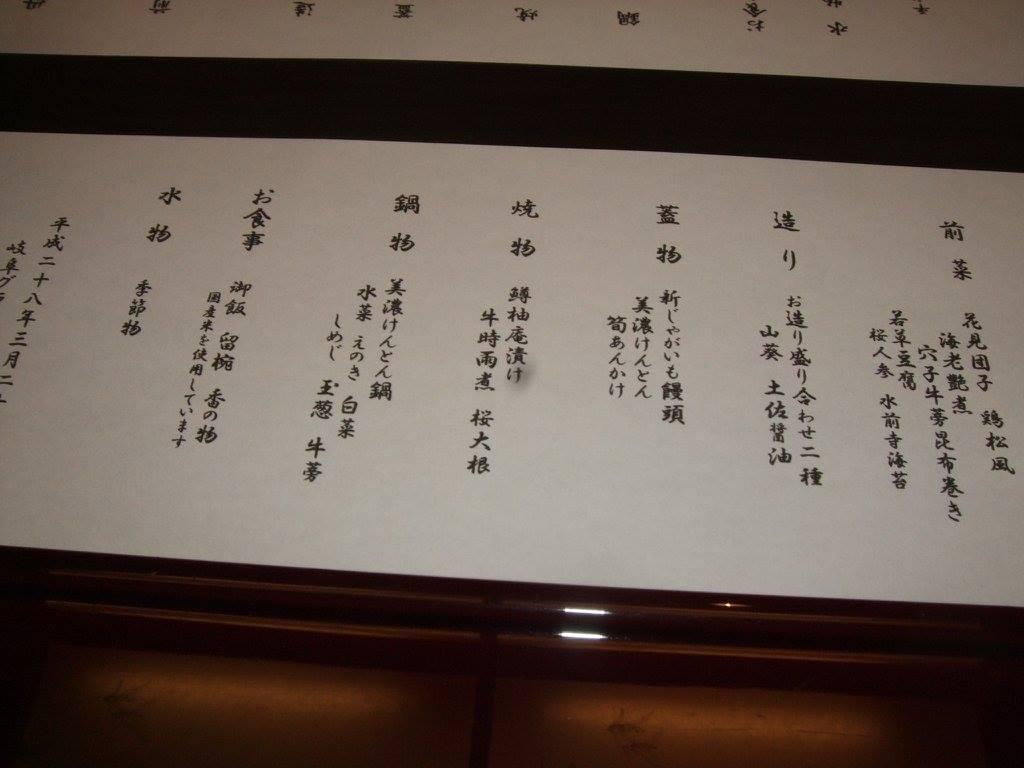 前菜
花見団子 鶏松風
海老艶煮
穴子牛蒡昆布巻き
若草豆腐
桜人参 水前寺海苔
造り
お造り盛り合わせ二種
山葵 土佐醤油
蓋物
新じゃがいも饅頭
美濃けんとん
筍あんかけ
焼物
鱒柚庵漬け
牛時雨煮 桜大根
鍋物
美濃けんとん鍋
水菜 えのき 白菜
しめじ 玉葱 牛蒡
お食事
御飯 留椀 香の物
国産米を使用しています
水物
季節物
平成二十八年三月二十
岐阜グラ